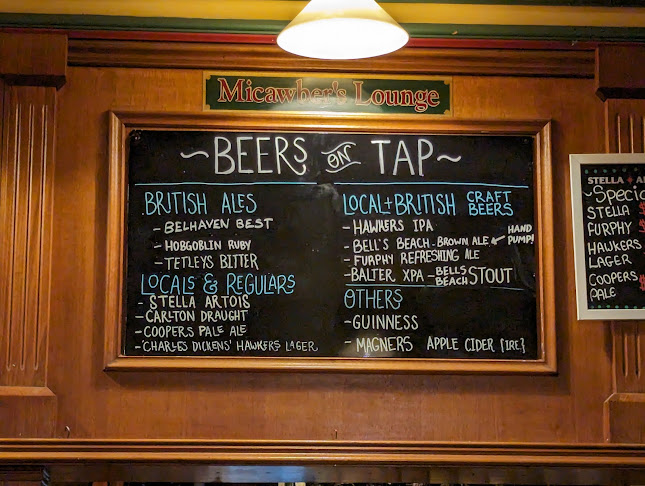 Micawber's Lounge
~BEERS ON TAP~
BRITISH ALES
- BELHAVEN BEST
- HOBGOBLIN RUBY
- TETLEYS BITTER
LOCALS & REGULARS
- STELLA ARTOIS
- CARLTON DRAUGHT
- COOPERS PALE ALE
- CHARLES DICKENS' HAWKERS LAGER
LOCAL + BRITISH CRAFT BEERS
- HAWKERS IPA
- BELL'S BEACH. BROWN ALE HAND PUMP!
- FURPHY REFRESHING ALE
- BALTER XPA - BELLS BEACH STOUT
OTHERS
- GUINNESS
- MAGNERS APPLE CIDER {IRE.}
STELLA
STELLA
FURPHY
HAWKERS
LAGER
COOPERS
PALE